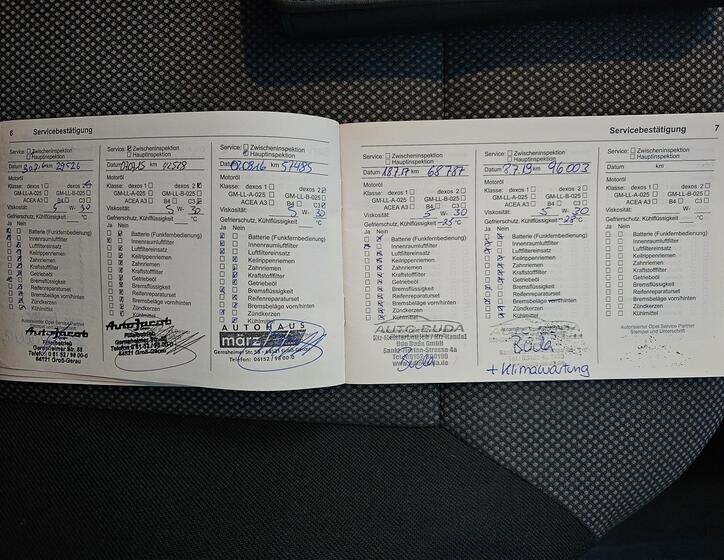 6 Servicebestätigung
Service: Zwischeninspektion
Hauptinspektion
Datum km 29526
Motoröl
Klasse: dexos 1 dexos 2
GM-LL-A-025 GM-LL-B-025
ACEA A3 B4 C3
Viskosität: 5 W- 30
Gefrierschutz, Kühlflüssigkeit °C
Ja Nein
Batterie (Funkfernbedienung)
Innenraumluftfilter
Luftfiltereinsatz
Keilrippenriemen
Zahnriemen
Kraftstofffilter
Getriebeöl
Bremsflüssigkeit
Reifenreparaturset
Bremsbeläge vorn/hinten
Zündkerzen
Kühlmittel
Autorisierter Opel Service Partner
AutoJacob
Gernsheimer Str. 58
Telefon 0 61 52 / 98 00-0
64521 Groß-Gerau
Service: Zwischeninspektion
Hauptinspektion
Datum km
Motoröl
Klasse: dexos 1 dexos 2
GM-LL-A-025 GM-LL-B-025
ACEA A3 B4 C3
Viskosität: 5 W- 30
Gefrierschutz, Kühlflüssigkeit °C
Ja Nein
Batterie (Funkfernbedienung)
Innenraumluftfilter
Luftfiltereinsatz
Keilrippenriemen
Zahnriemen
Kraftstofffilter
Getriebeöl
Bremsflüssigkeit
Reifenreparaturset
Bremsbeläge vorn/hinten
Zündkerzen
Kühlmittel
AutoJacob
Telefon 0 61 52 / 98 00-0
64521 Groß-Gerau
Service: Zwischeninspektion
Hauptinspektion
Datum 02.08.16 km 57485
Motoröl
Klasse: dexos 1 dexos 2
GM-LL-A-025 GM-LL-B-025
ACEA A3 B4 C3
Viskosität: 5 W- 30
Gefrierschutz, Kühlflüssigkeit °C
Ja Nein
Batterie (Funkfernbedienung)
Innenraumluftfilter
Luftfiltereinsatz
Keilrippenriemen
Zahnriemen
Kraftstofffilter
Getriebeöl
Bremsflüssigkeit
Reifenreparaturset
Bremsbeläge vorn/hinten
Zündkerzen
Kühlmittel
AUTOHAUS
märz
Telefon: 06152 / 98 00
Servicebestätigung 7
Service: Zwischeninspektion
Hauptinspektion
Datum 18.7.17 km 68787
Motoröl
Klasse: dexos 1 dexos 2
GM-LL-A-025 GM-LL-B-025
ACEA A3 B4 C3
Viskosität: 5 W- 30
Gefrierschutz, Kühlflüssigkeit -25 °C
Ja Nein
Batterie (Funkfernbedienung)
Innenraumluftfilter
Luftfiltereinsatz
Keilrippenriemen
Zahnriemen
Kraftstofffilter
Getriebeöl
Bremsflüssigkeit
Reifenreparaturset
Bremsbeläge vorn/hinten
Zündkerzen
Kühlmittel
AUTO-BUDA
Kfz-Meisterbetrieb / Kfz-Handel
Udo Buda GmbH
Service: Zwischeninspektion
Hauptinspektion
Datum 8.7.19 km 96003
Motoröl
Klasse: dexos 1 dexos 2
GM-LL-A-025 GM-LL-B-025
ACEA A3 B4 C3
Viskosität: 5 W- 30
Gefrierschutz, Kühlflüssigkeit -28 °C
Ja Nein
Batterie (Funkfernbedienung)
Innenraumluftfilter
Luftfiltereinsatz
Keilrippenriemen
Zahnriemen
Kraftstofffilter
Getriebeöl
Bremsflüssigkeit
Reifenreparaturset
Bremsbeläge vorn/hinten
Zündkerzen
Kühlmittel
Buda
+ Klimawartung
Service: Zwischeninspektion
Hauptinspektion
Datum km
Motoröl
Klasse: dexos 1 dexos 2
GM-LL-A-025 GM-LL-B-025
ACEA A3 B4 C3
Viskosität: W-
Gefrierschutz, Kühlflüssigkeit °C
Ja Nein
Batterie (Funkfernbedienung)
Innenraumluftfilter
Luftfiltereinsatz
Keilrippenriemen
Zahnriemen
Kraftstofffilter
Getriebeöl
Bremsflüssigkeit
Reifenreparaturset
Bremsbeläge vorn/hinten
Zündkerzen
Kühlmittel
Autorisierter Opel Service Partner
Stempel und Unterschrift